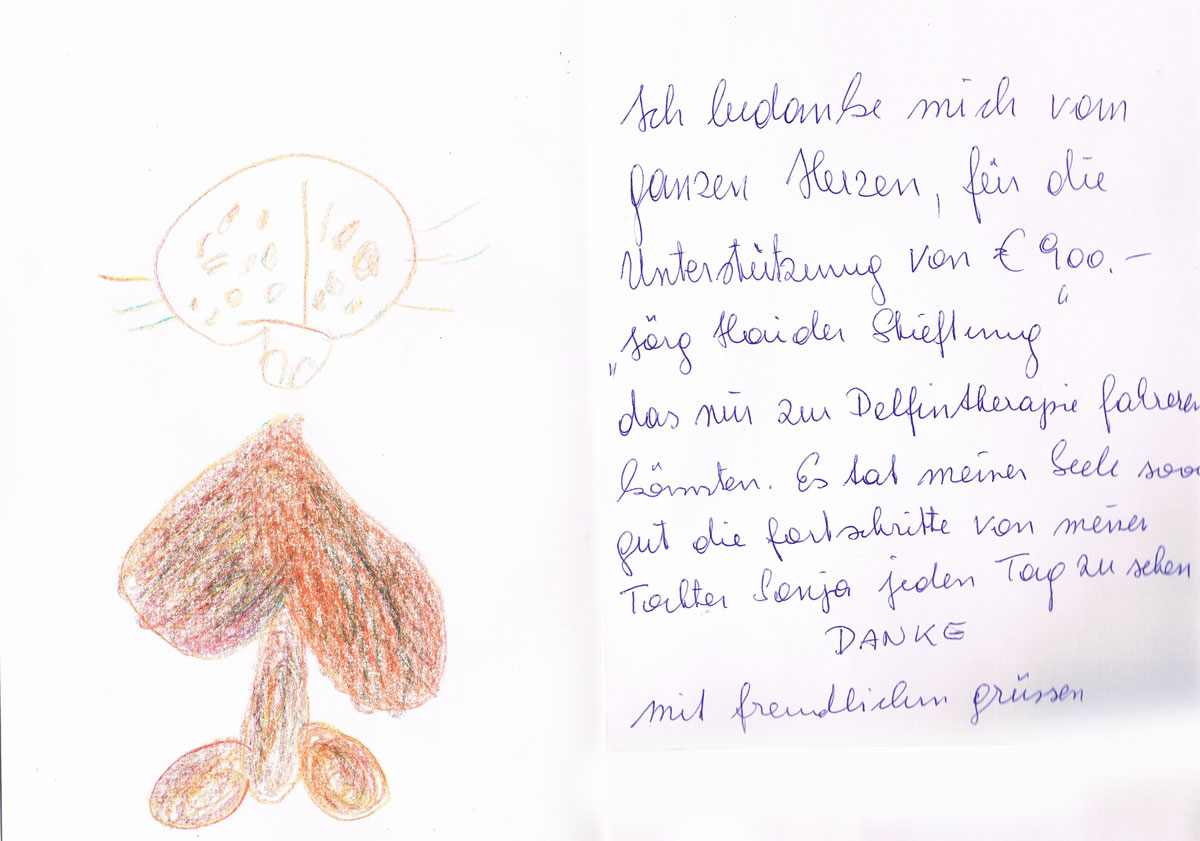 Ich bedanke mich vom
ganzen Herzen, für die
Unterstützung von € 900.–
"Jörg Haider Stieftung"
das wir zur Delfintherapie fahreren
könnten. Es tat meiner Seele sooo
gut die fortschritte von meiner
Tochter Sonja jeden Tag zu sehen
DANKE
mit freundlichen grüssen